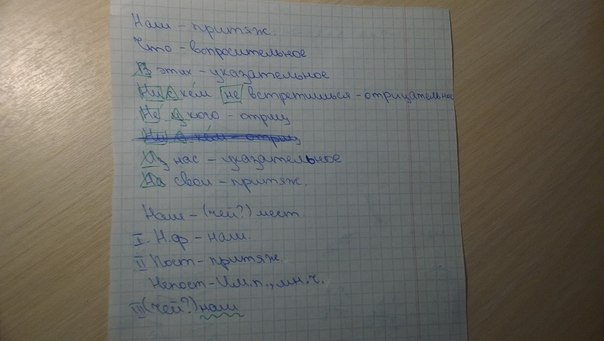 Наш - притяж.
Что - вопросительное
В этих - указательное
Ни с кем не встретишься - отрицательное
Не с кого - отриц
Ни с кем - отриц
Из нас - указательное
На свои - притяж.
Наш - (чей?) мест
I. Н.ф - наш
II Пост - притяж.
Непост - Им.п., мн.ч.
III (чей?) наш